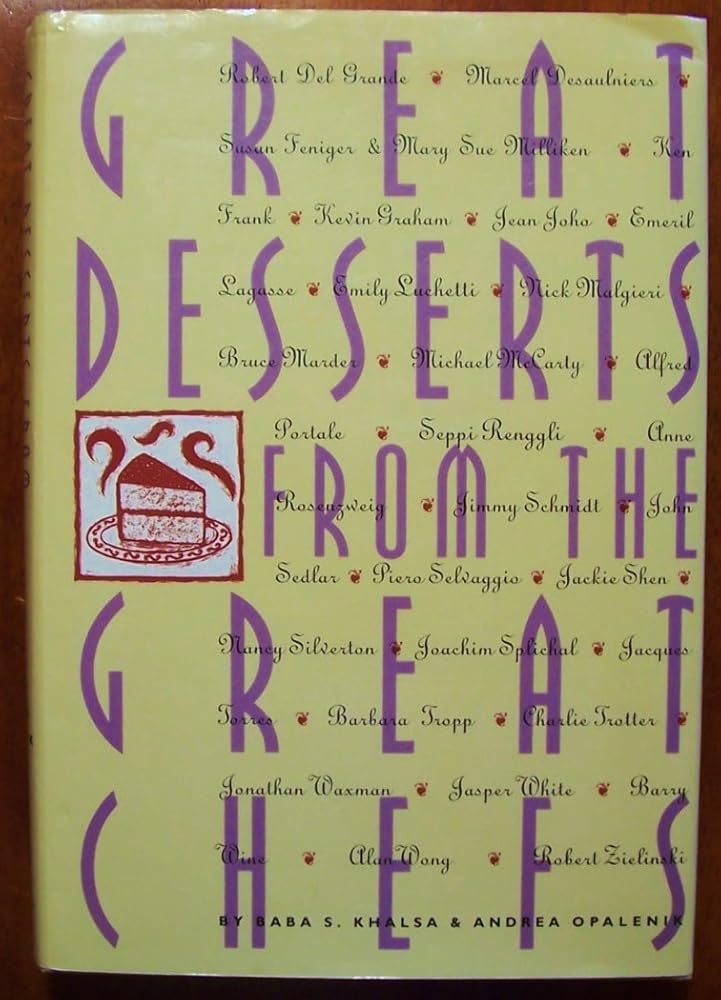 GREAT
DESSERTS
FROM THE
GREAT
CHEFS
Robert Del Grande ❦ Marcel Desaulniers ❦
Susan Feniger & Mary Sue Milliken ❦ Ken
Frank ❦ Kevin Graham ❦ Jean Joho ❦ Emeril
Lagasse ❦ Emily Luchetti ❦ Nick Malgieri ❦
Bruce Marder ❦ Michael McCarty ❦ Alfred
Portale ❦ Seppi Renggli ❦ Anne
Rosenzweig ❦ Jimmy Schmidt ❦ John
Sedlar ❦ Piero Selvaggio ❦ Jackie Shen ❦
Nancy Silverton ❦ Joachim Splichal ❦ Jacques
Torres ❦ Barbara Tropp ❦ Charlie Trotter ❦
Jonathan Waxman ❦ Jasper White ❦ Barry
Wine ❦ Alan Wong ❦ Robert Zielinski
BY BABA S. KHALSA & ANDREA OPALENIK
GREAT DESSERTS FROM